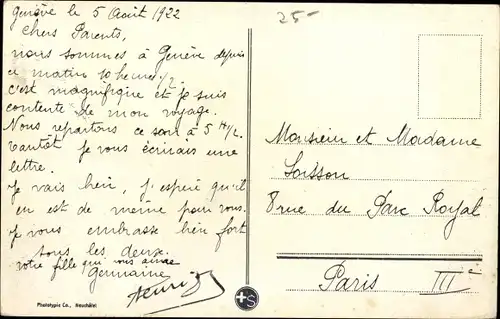 Genève le 5 Août 1922
25-
Chers Parents,
nous sommes à Genève depuis
ce matin 10 heures 1/2.
c'est magnifique et je suis
contente de mon voyage.
Nous repartons ce soir à 5 H 1/2.
tantôt je vous écrirais une
lettre.
Je vais bien, j'espère qu'il
en est de même pour vous.
Je vous embrasse bien fort
tous les deux.
votre fille qui vous aime
Germaine
Henri
Phototypie Co., Neuchâtel
S
Monsieur et Madame
8 rue du Parc Royal
Paris III e